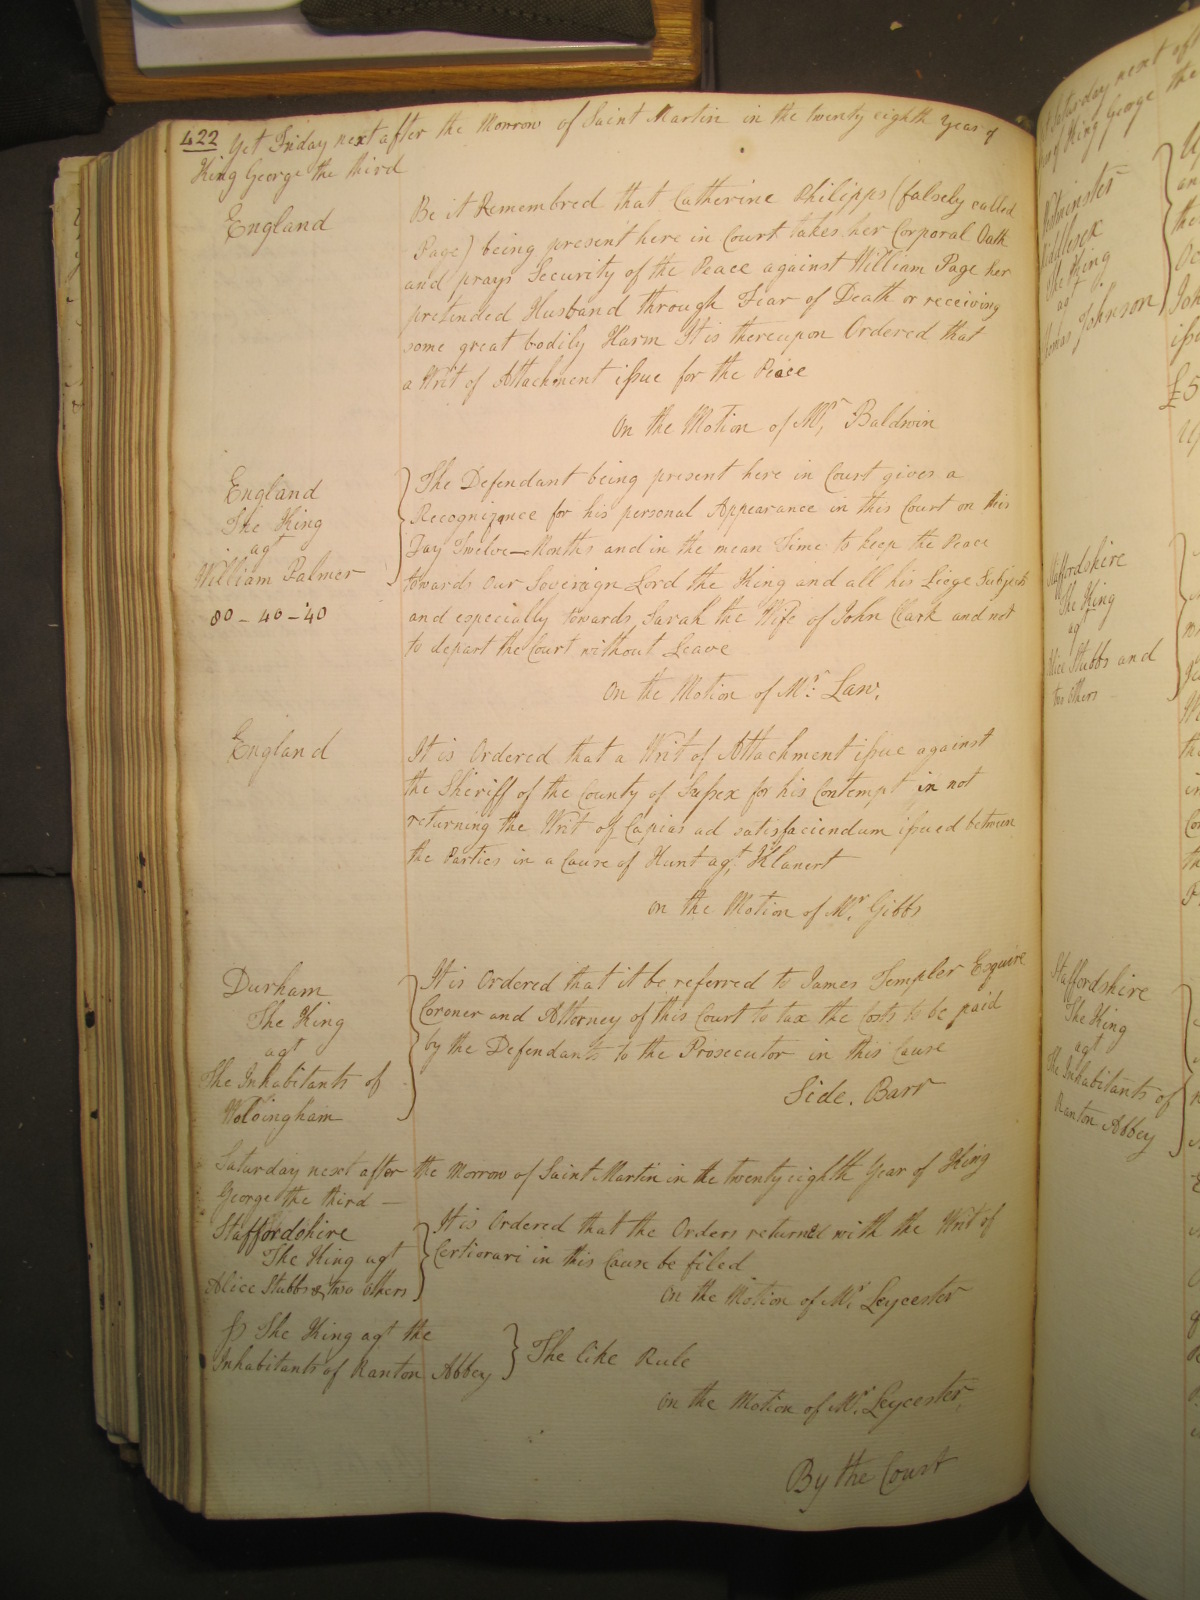 422 Yet Friday next after the Morrow of Saint Martin in the twenty eighth Year of
King George the third
England
Be it Remembred that Catherine Philipps (falsely called
Page) being present here in Court takes her Corporal Oath
and prays Security of the Peace against William Page her
pretended Husband through Fear of Death or receiving
some great bodily Harm It is thereupon Ordered that
a Writ of Attachment issue for the Peace
On the Motion of Mr. Baldwin
England
The King
agt
William Palmer
80 - 40 - 40
The Defendant being present here in Court gives a
Recognizance for his personal Appearance in this Court on this
Day Twelve-Months and in the mean Time to keep the Peace
towards Our Sovereign Lord the King and all his Liege Subjects
and especially towards Sarah the Wife of John Clark and not
to depart the Court without Leave
On the Motion of Mr. Law.
England
It is Ordered that a Writ of Attachment issue against
the Sheriff of the County of Sussex for his Contempt in not
returning the Writ of Capias ad satisfaciendum issued between
the Parties in a Cause of Hunt agt. Klanert
On the Motion of Mr. Gibbs
Durham
The King
agt
The Inhabitants of
Wolsingham
It is Ordered that it be referred to James Templer Esquire
Coroner and Attorney of this Court to tax the Costs to be paid
by the Defendants to the Prosecutor in this Cause
Side. Barr
Saturday next after the Morrow of Saint Martin in the twenty eighth Year of King
George the third —
Staffordshire
The King agt
Alice Stubbs & two others
It is Ordered that the Orders returned with the Writ of
Certiorari in this Cause be filed
On the Motion of Mr. Leycester
The King agt the
Inhabitants of Ranton Abbey
The like Rule
On the Motion of Mr. Leycester
By the Court
Saturday next
of King George
Middlesex
The King
agt
Johnson
£5
Staffordshire
The King
agt
Alice Stubbs and
two Others
Staffordshire
The King
agt
The Inhabitants of
Ranton Abbey